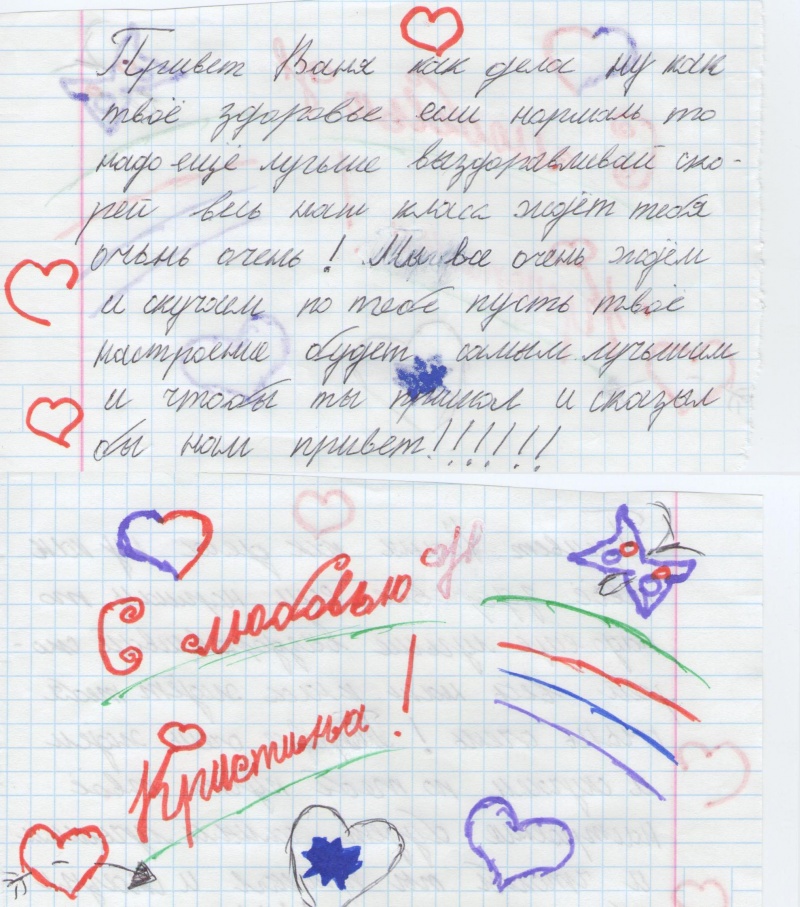 Привет Ваня как дела ну как
твоё здоровье если нормаль то
надо ещё лучьше выздоравливай ско-
рей весь наш класс ждёт тебя
очьнь очень! Мы все очень ждём
и скучаем по тебе пусть твоё
настроение будет самым лучьшим
и чтобы ты пришол и сказыл
бы нам привет!!!!!!!
С любовью
Кристина!